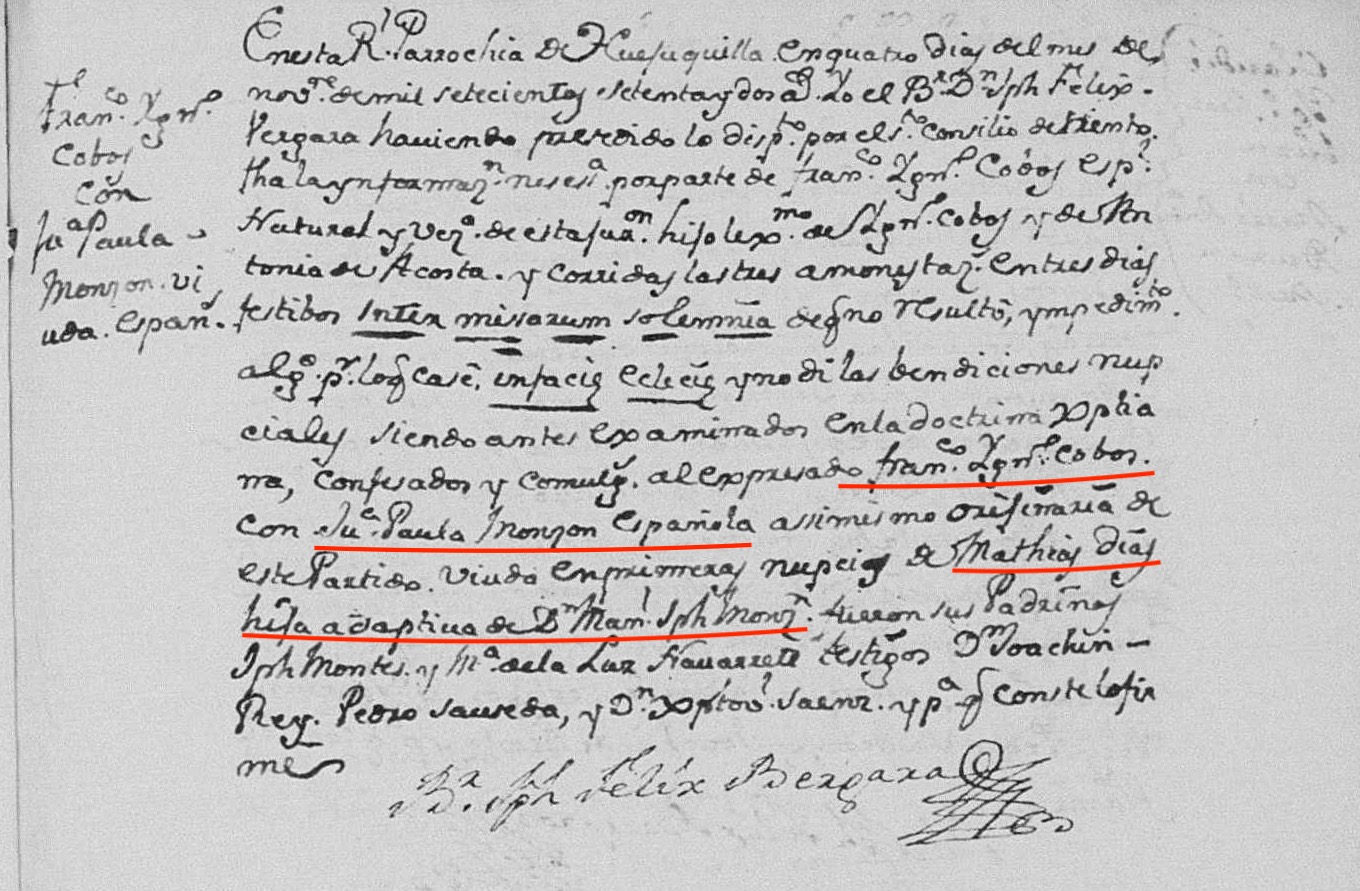 Fran.co Ygn.o
Cobos
con
Ju.a Paula
Monzon. vi
uda. españ.s
En esta R.l Parrochia de Huejuquilla en quatro dias del mes de
nov.re de mil setecientos setenta y dos a.s Yo el B.r D.n Jph Felix
Vergara haviendo presedido lo disp.to por el s.to consilio de trento.
fha la ynformaz.n neses.a por parte de fran.co Ygn.o Cobos esp.l
Natural y vez.o de esta jur.on hijo lex.mo de Ygn.o cobos y de An
tonia de Acosta. y corridas las tres amonestaz.s en tres dias
festibos Inter missarum solemnia de q no resultó, ympedim.to
alg.o p.r lo q casé, in facie eclecie y no di las bendiciones nup
ciales siendo antes examinados en la doctrina xptia
na, confesados y comulg.s al expresado fran.co Ygn.o cobos.
con Ju.a Paula Monzon española assimismo orijinaria de
este Partido. viuda en primeras nupcias de Mathias Dias
hija adaptiva de D.n Man.l Jph Monz.n fueron sus Padrinos
Jph Montes. y M.a de la Luz Navarrete testigos D.n Joachin
Rey. Pedro sauseda, y D.n Xptov.l Saenz. y p.a q conste lo fir
me
B.r Jph Felix Bergara